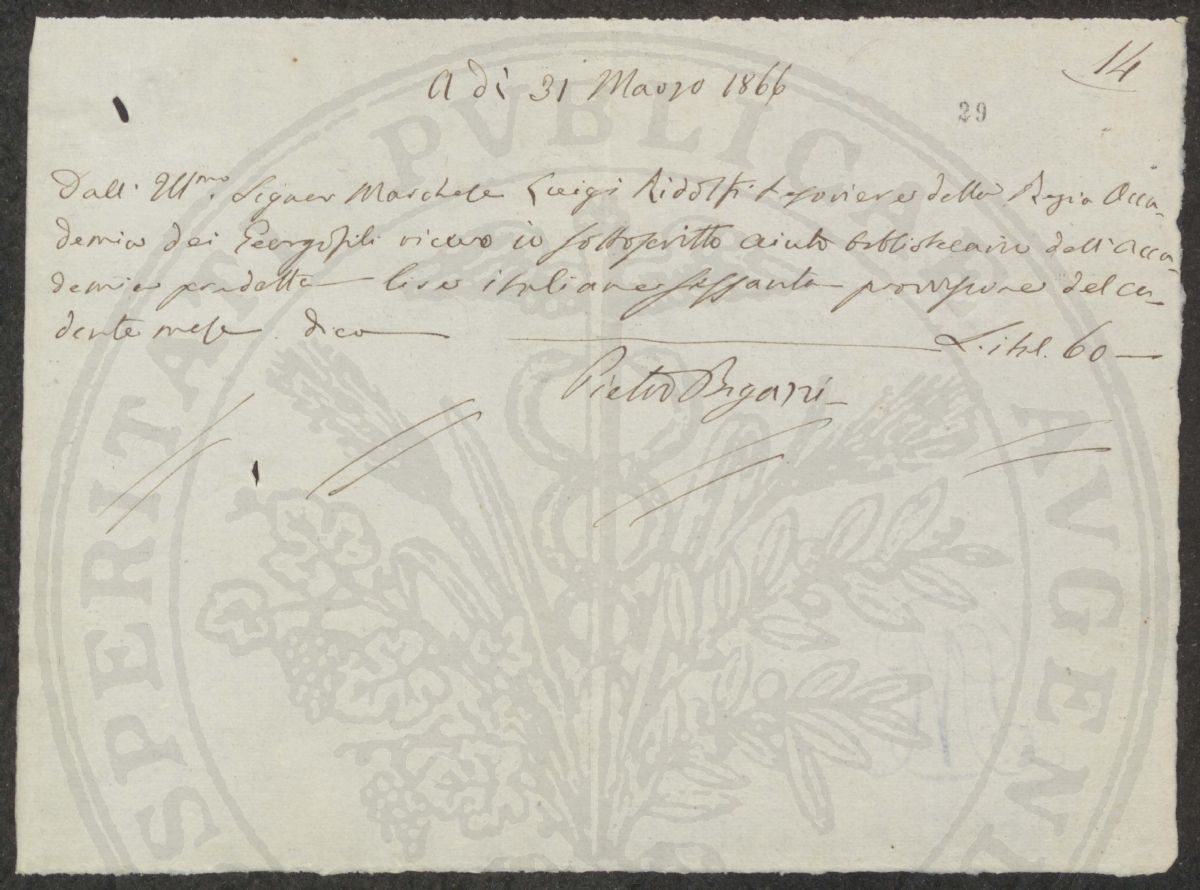 14
A dì 31 Marzo 1866
29
Dall' Ill.mo Signor Marchese Luigi Ridolfi Tesoriere della Regia Acca-
demia dei Georgofili ricevo io sottoscritto aiuto bibliotecario dell'Acca-
demia predetta lire italiane sessanta provvisione del ca-
dente mese dico L. ital. 60
Pietro Bigazzi
PROSPERITATI PVBLICAE AVGENDAE